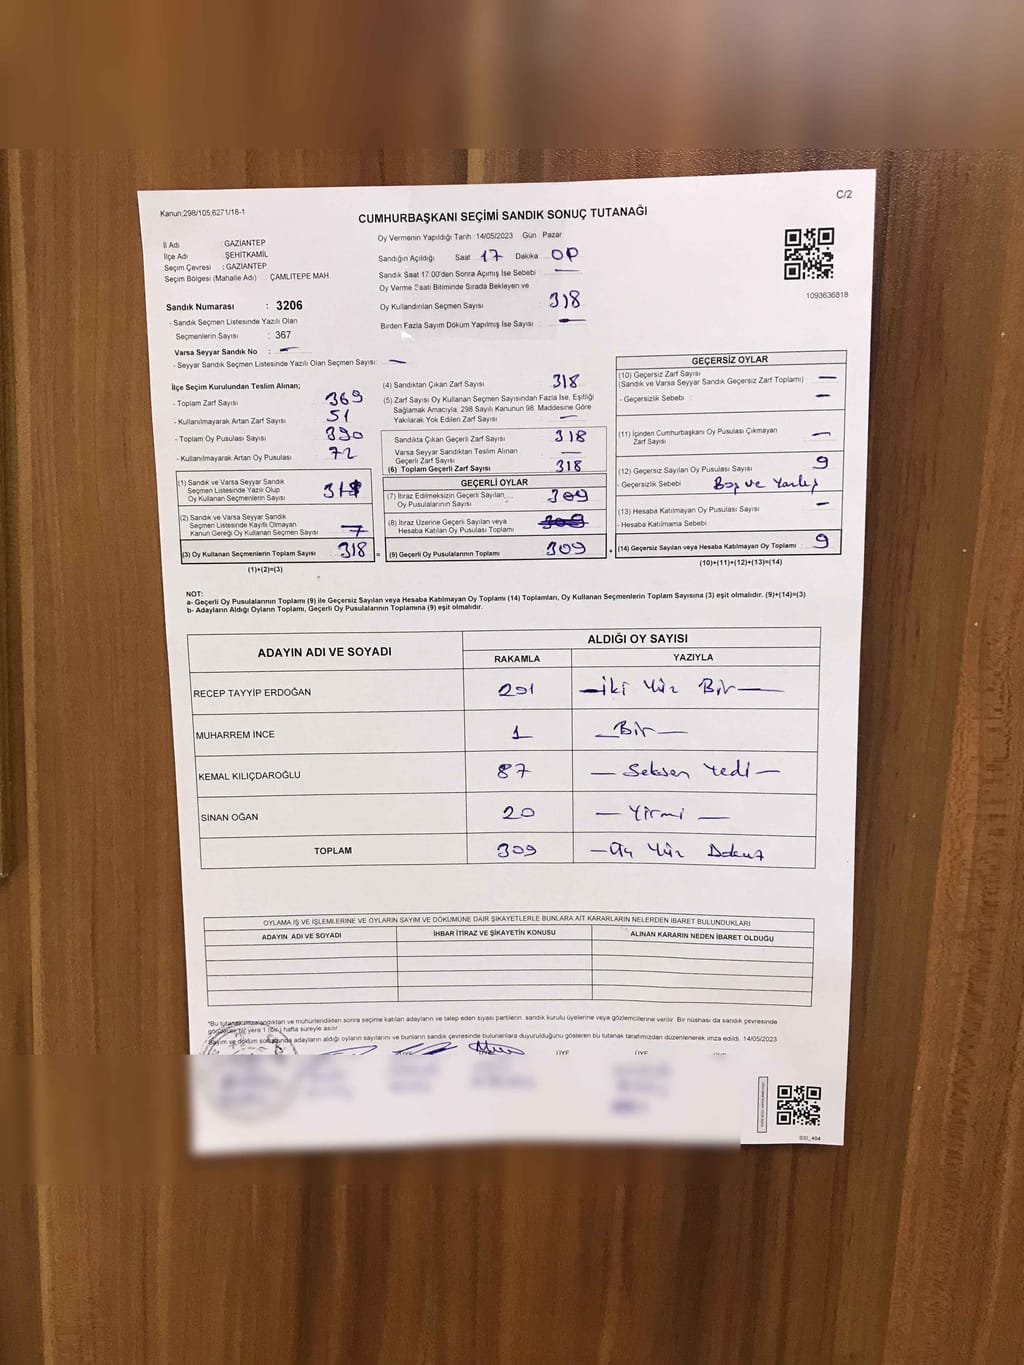 Kanun;298/105;6271/18-1
C/2
CUMHURBAŞKANI SEÇİMİ SANDIK SONUÇ TUTANAĞI
İl Adı : GAZİANTEP
İlçe Adı : ŞEHİTKAMİL
Seçim Çevresi : GAZİANTEP
Seçim Bölgesi (Mahalle Adı) : ÇAMLITEPE MAH.
Sandık Numarası : 3206
- Sandık Seçmen Listesinde Yazılı Olan
Seçmenlerin Sayısı : 367
Varsa Seyyar Sandık No : —
- Seyyar Sandık Seçmen Listesinde Yazılı Olan Seçmen Sayısı: —
Oy Vermenin Yapıldığı Tarih :14/05/2023 Gün : Pazar
Sandığın Açıldığı Saat 17 Dakika
Sandık Saat 17:00'den Sonra Açımış İse Sebebi —
Oy Verme Saati Bitiminde Sırada Bekleyen ve
Oy Kullandırılan Seçmen Sayısı : 318
Birden Fazla Sayım Döküm Yapılmış İse Sayısı : —
1093636818
İlçe Seçim Kurulundan Teslim Alınan;
- Toplam Zarf Sayısı : 369
- Kullanılmayarak Artan Zarf Sayısı : 51
- Toplam Oy Pusulası Sayısı : 390
- Kullanılmayarak Artan Oy Pusulası : 72
(1) Sandık ve Varsa Seyyar Sandık
Seçmen Listesinde Yazılı Olup
Oy Kullanan Seçmenlerin Sayısı 318
(2) Sandık ve Varsa Seyyar Sandık
Seçmen Listesinde Kayıtlı Olmayan
Kanun Gereği Oy Kullanan Seçmen Sayısı
(3) Oy Kullanan Seçmenlerin Toplam Sayısı 318 =
(1)+(2)=(3)
(4) Sandıktan Çıkan Zarf Sayısı : 318
(5) Zarf Sayısı Oy Kullanan Seçmen Sayısından Fazla İse, Eşitliği
Sağlamak Amacıyla, 298 Sayılı Kanunun 98. Maddesine Göre
Yakılarak Yok Edilen Zarf Sayısı : —
Sandıkta Çıkan Geçerli Zarf Sayısı : 318
Varsa Seyyar Sandıktan Teslim Alınan
Geçerli Zarf Sayısı : —
(6) Toplam Geçerli Zarf Sayısı : 318
GEÇERLİ OYLAR
(7) İtiraz Edilmeksizin Geçerli Sayılan
Oy Pusulalarının Sayısı : 309
(8) İtiraz Üzerine Geçerli Sayılan veya
Hesaba Katılan Oy Pusulası Toplamı :
(9) Geçerli Oy Pusulalarının Toplamı : 309 +
GEÇERSİZ OYLAR
(10) Geçersiz Zarf Sayısı : —
(Sandık ve Varsa Seyyar Sandık Geçersiz Zarf Toplamı)
- Geçersizlik Sebebi : —
(11) İçinden Cumhurbaşkanı Oy Pusulası Çıkmayan
Zarf Sayısı : —
(12) Geçersiz Sayılan Oy Pusulası Sayısı : 9
- Geçersizlik Sebebi : Boş ve Yanlış
(13) Hesaba Katılmayan Oy Pusulası Sayısı : —
- Hesaba Katılmama Sebebi :
(14) Geçersiz Sayılan veya Hesaba Katılmayan Oy Toplamı : 9
(10)+(11)+(12)+(13)=(14)
NOT:
a- Geçerli Oy Pusulalarının Toplamı (9) ile Geçersiz Sayılan veya Hesaba Katılmayan Oy Toplamı (14) Toplamları, Oy Kullanan Seçmenlerin Toplam Sayısına (3) eşit olmalıdır. (9)+(14)=(3)
b- Adayların Aldığı Oyların Toplamı, Geçerli Oy Pusulalarının Toplamına (9) eşit olmalıdır.
ADAYIN ADI VE SOYADI ALDIĞI OY SAYISI
RAKAMLA YAZIYLA
RECEP TAYYİP ERDOĞAN 201 —İki Yüz Bir—
MUHARREM İNCE 1 —Bir—
KEMAL KILIÇDAROĞLU 87 —Seksen Yedi—
SİNAN OĞAN 20 —Yirmi—
TOPLAM 309 —Üç Yüz Dokuz
OYLAMA İŞ VE İŞLEMLERİNE VE OYLARIN SAYIM VE DÖKÜMÜNE DAİR ŞİKAYETLERLE BUNLARA AİT KARARLARIN NELERDEN İBARET BULUNDUKLARI
ADAYIN ADI VE SOYADI İHBAR İTİRAZ VE ŞİKAYETİN KONUSU ALINAN KARARIN NEDEN İBARET OLDUĞU
*Bu tutanak imzalandıktan ve mühürlendikten sonra seçime katılan adayların ve talep eden siyasi partilerin sandık kurulu üyelerine veya gözlemcilerine verilir. Bir nüshası da sandık çevresinde
görülecek bir yere 1 (bir) hafta süreyle asılır.
Sayım ve döküm sonucunda adayların aldığı oyların sayılarını ve bunların sandık çevresinde bulunanlara duyurulduğunu gösteren bu tutanak tarafımızdan düzenlenerek imza edildi. 14/05/2023
ÜYE ÜYE
SSI_404